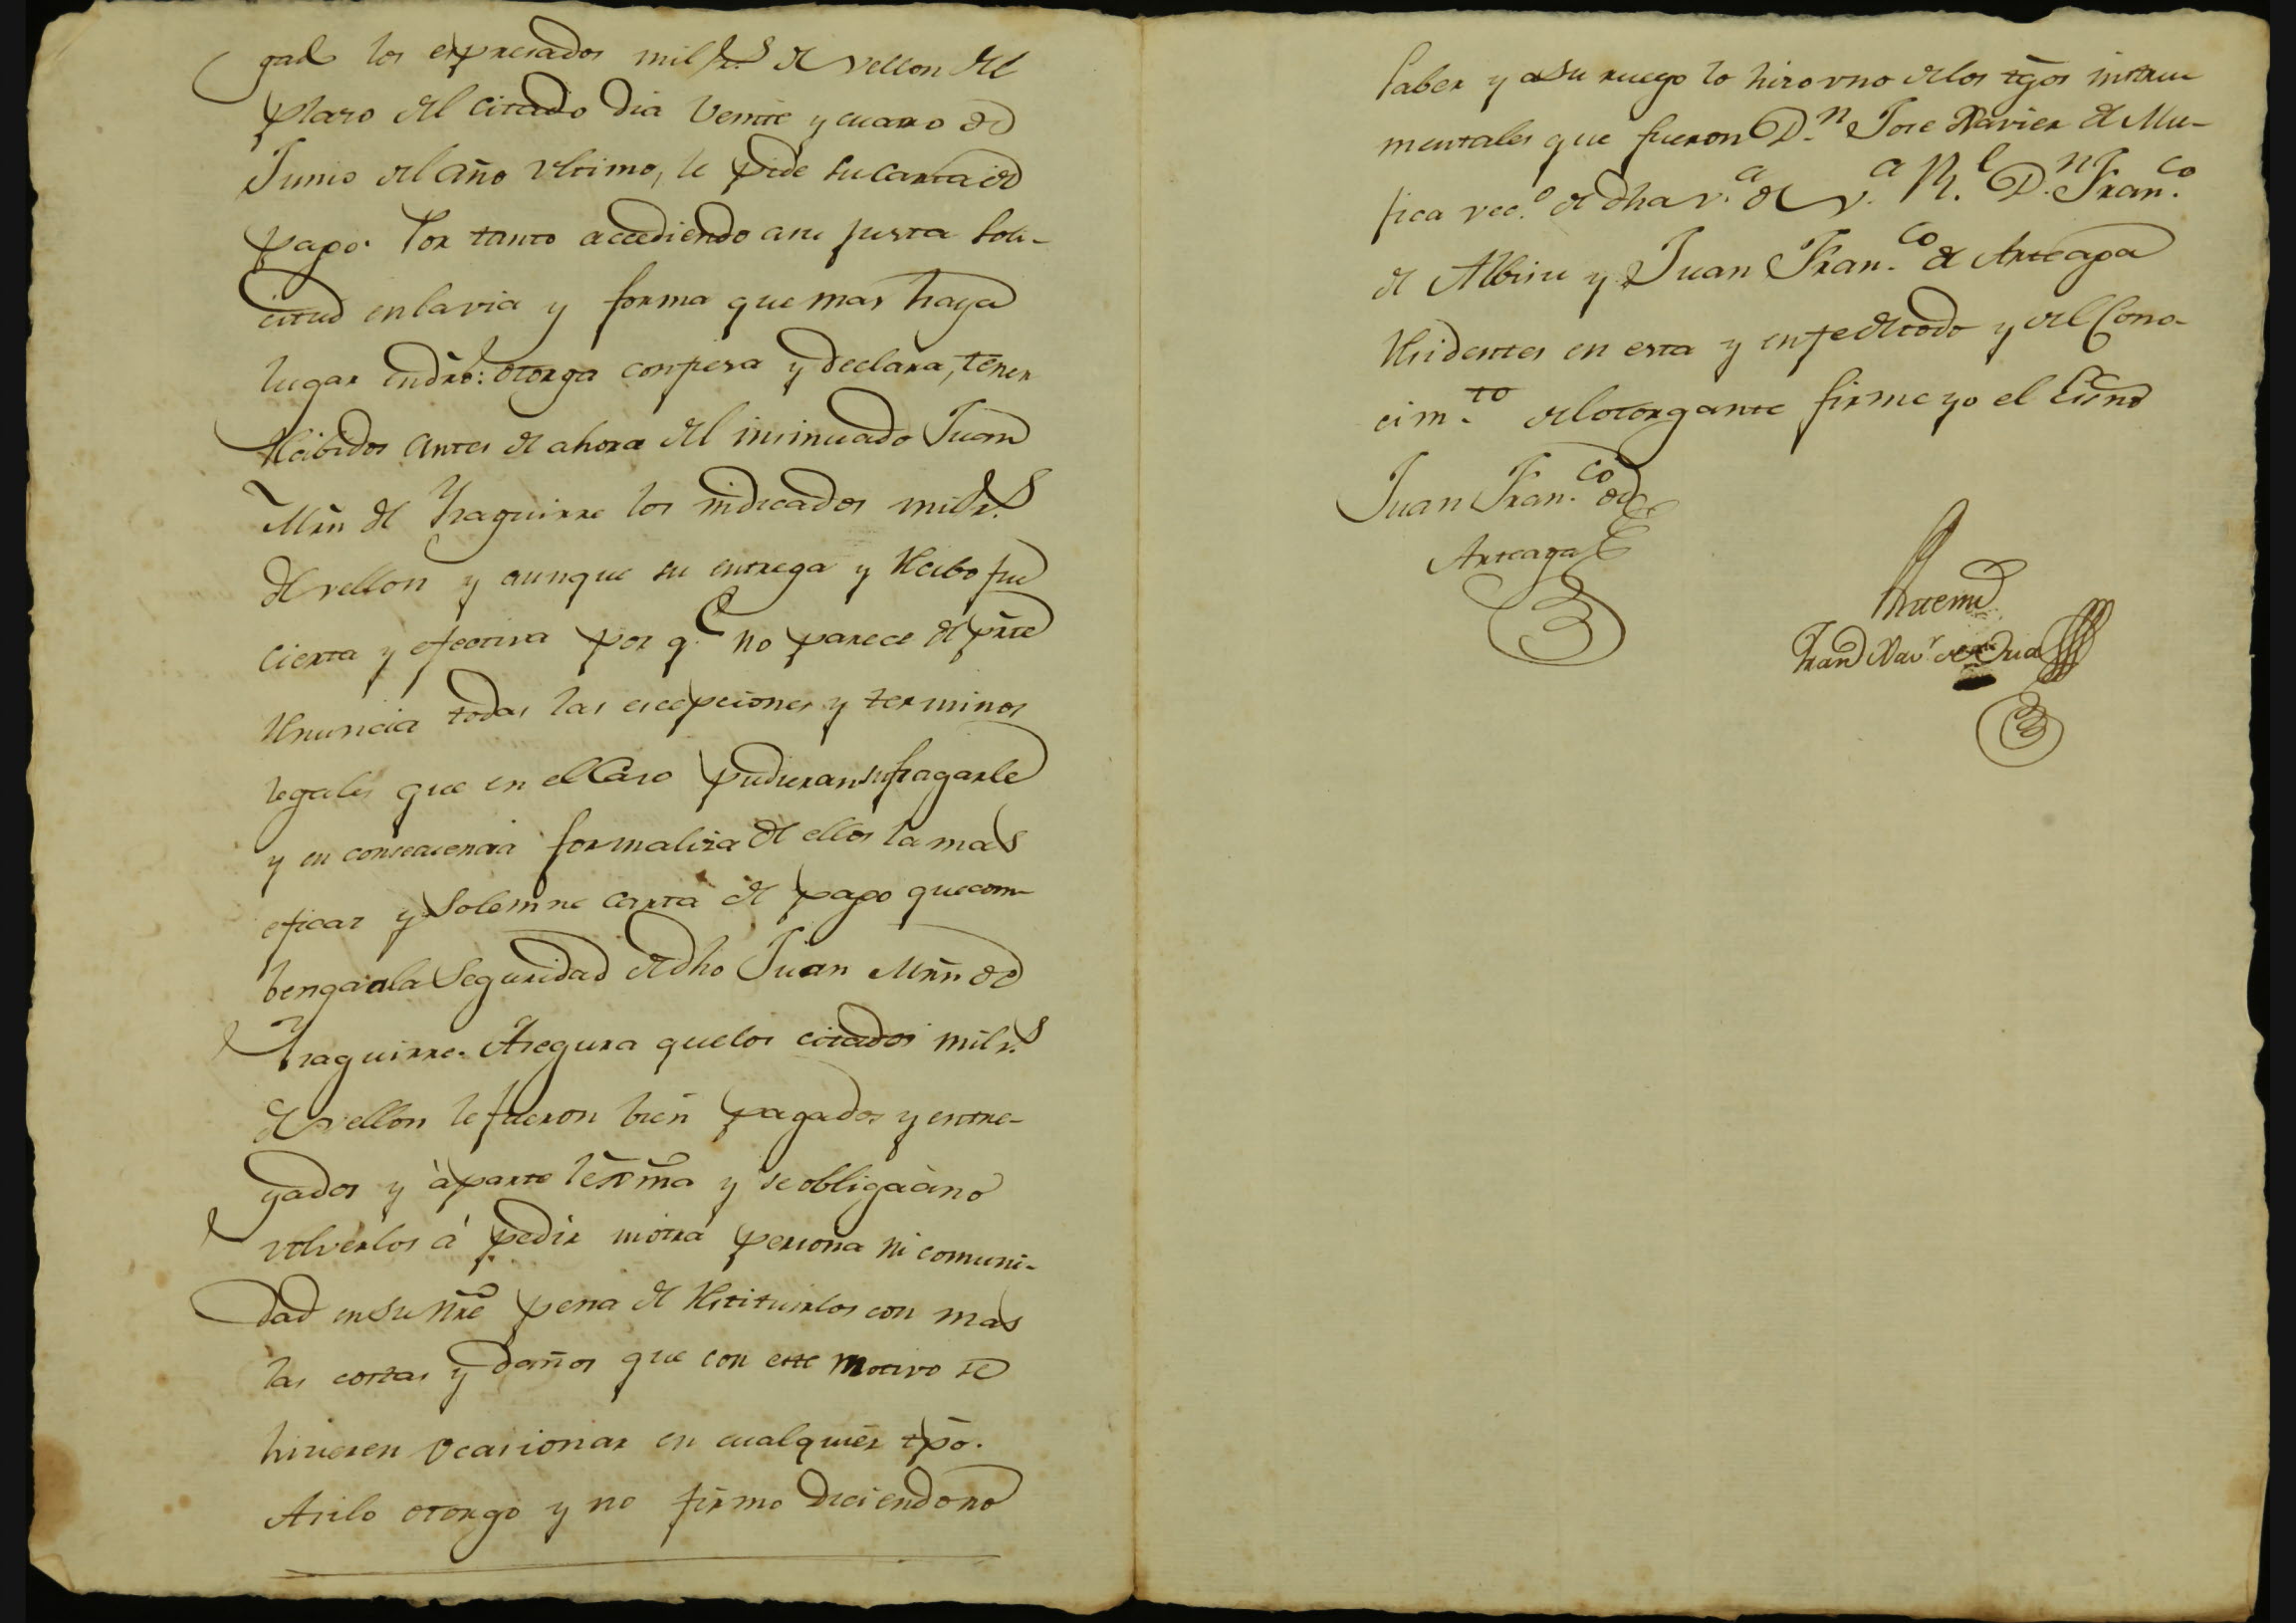 gado los expresados mil r.s de vellon del
plazo del citado dia Veinte y cuatro de
Junio del año ultimo, le pide su carta de
pago. Por tanto accediendo a su justa soli-
citud en la via y forma que mas haya
lugar en dro: otorga confiesa y declara, tener
Recibidos antes de ahora del insinuado Juan
Mrn de Yraguirre los indicados mil r.s
de vellon y aunque su entrega y Recibo fue
cierta y efectiva por q.e no parece de pñte
Renuncia todas las escepciones y terminos
legales que en el Caso pudieran sufragarle
y en consecuencia formaliza de ellos la mas
eficaz y Solemne carta de pago que com-
benga a la Seguridad de dho Juan Mrn de
Yraguirre. Asegura que los citados mil r.s
de vellon le fueron bien pagados y entre-
gados y à parte lexma y se obliga à no
volverlos à pedir ni otra persona ni comuni-
dad en su nre pena de Restituirlos con mas
las costas y daños que con este motivo se
hicieren ocasionar en cualquier tpo.
Asi lo otorgo y no firmo diciendo no
Saber y a su ruego lo hizo uno de los tgos instru
mentales que fueron D.n Jose Xavier de Mu-
gica vec.o de dha v.a de V.a R.l D.n Fran.co
de Albisu y Juan Fran.co de Arteaga
Residentes en esta y en fe de todo y del Cono-
cim.to del otorgante firme yo el Essno
Juan Fran.co de
Arteaga
Antemi
Fran.co Xav.r de